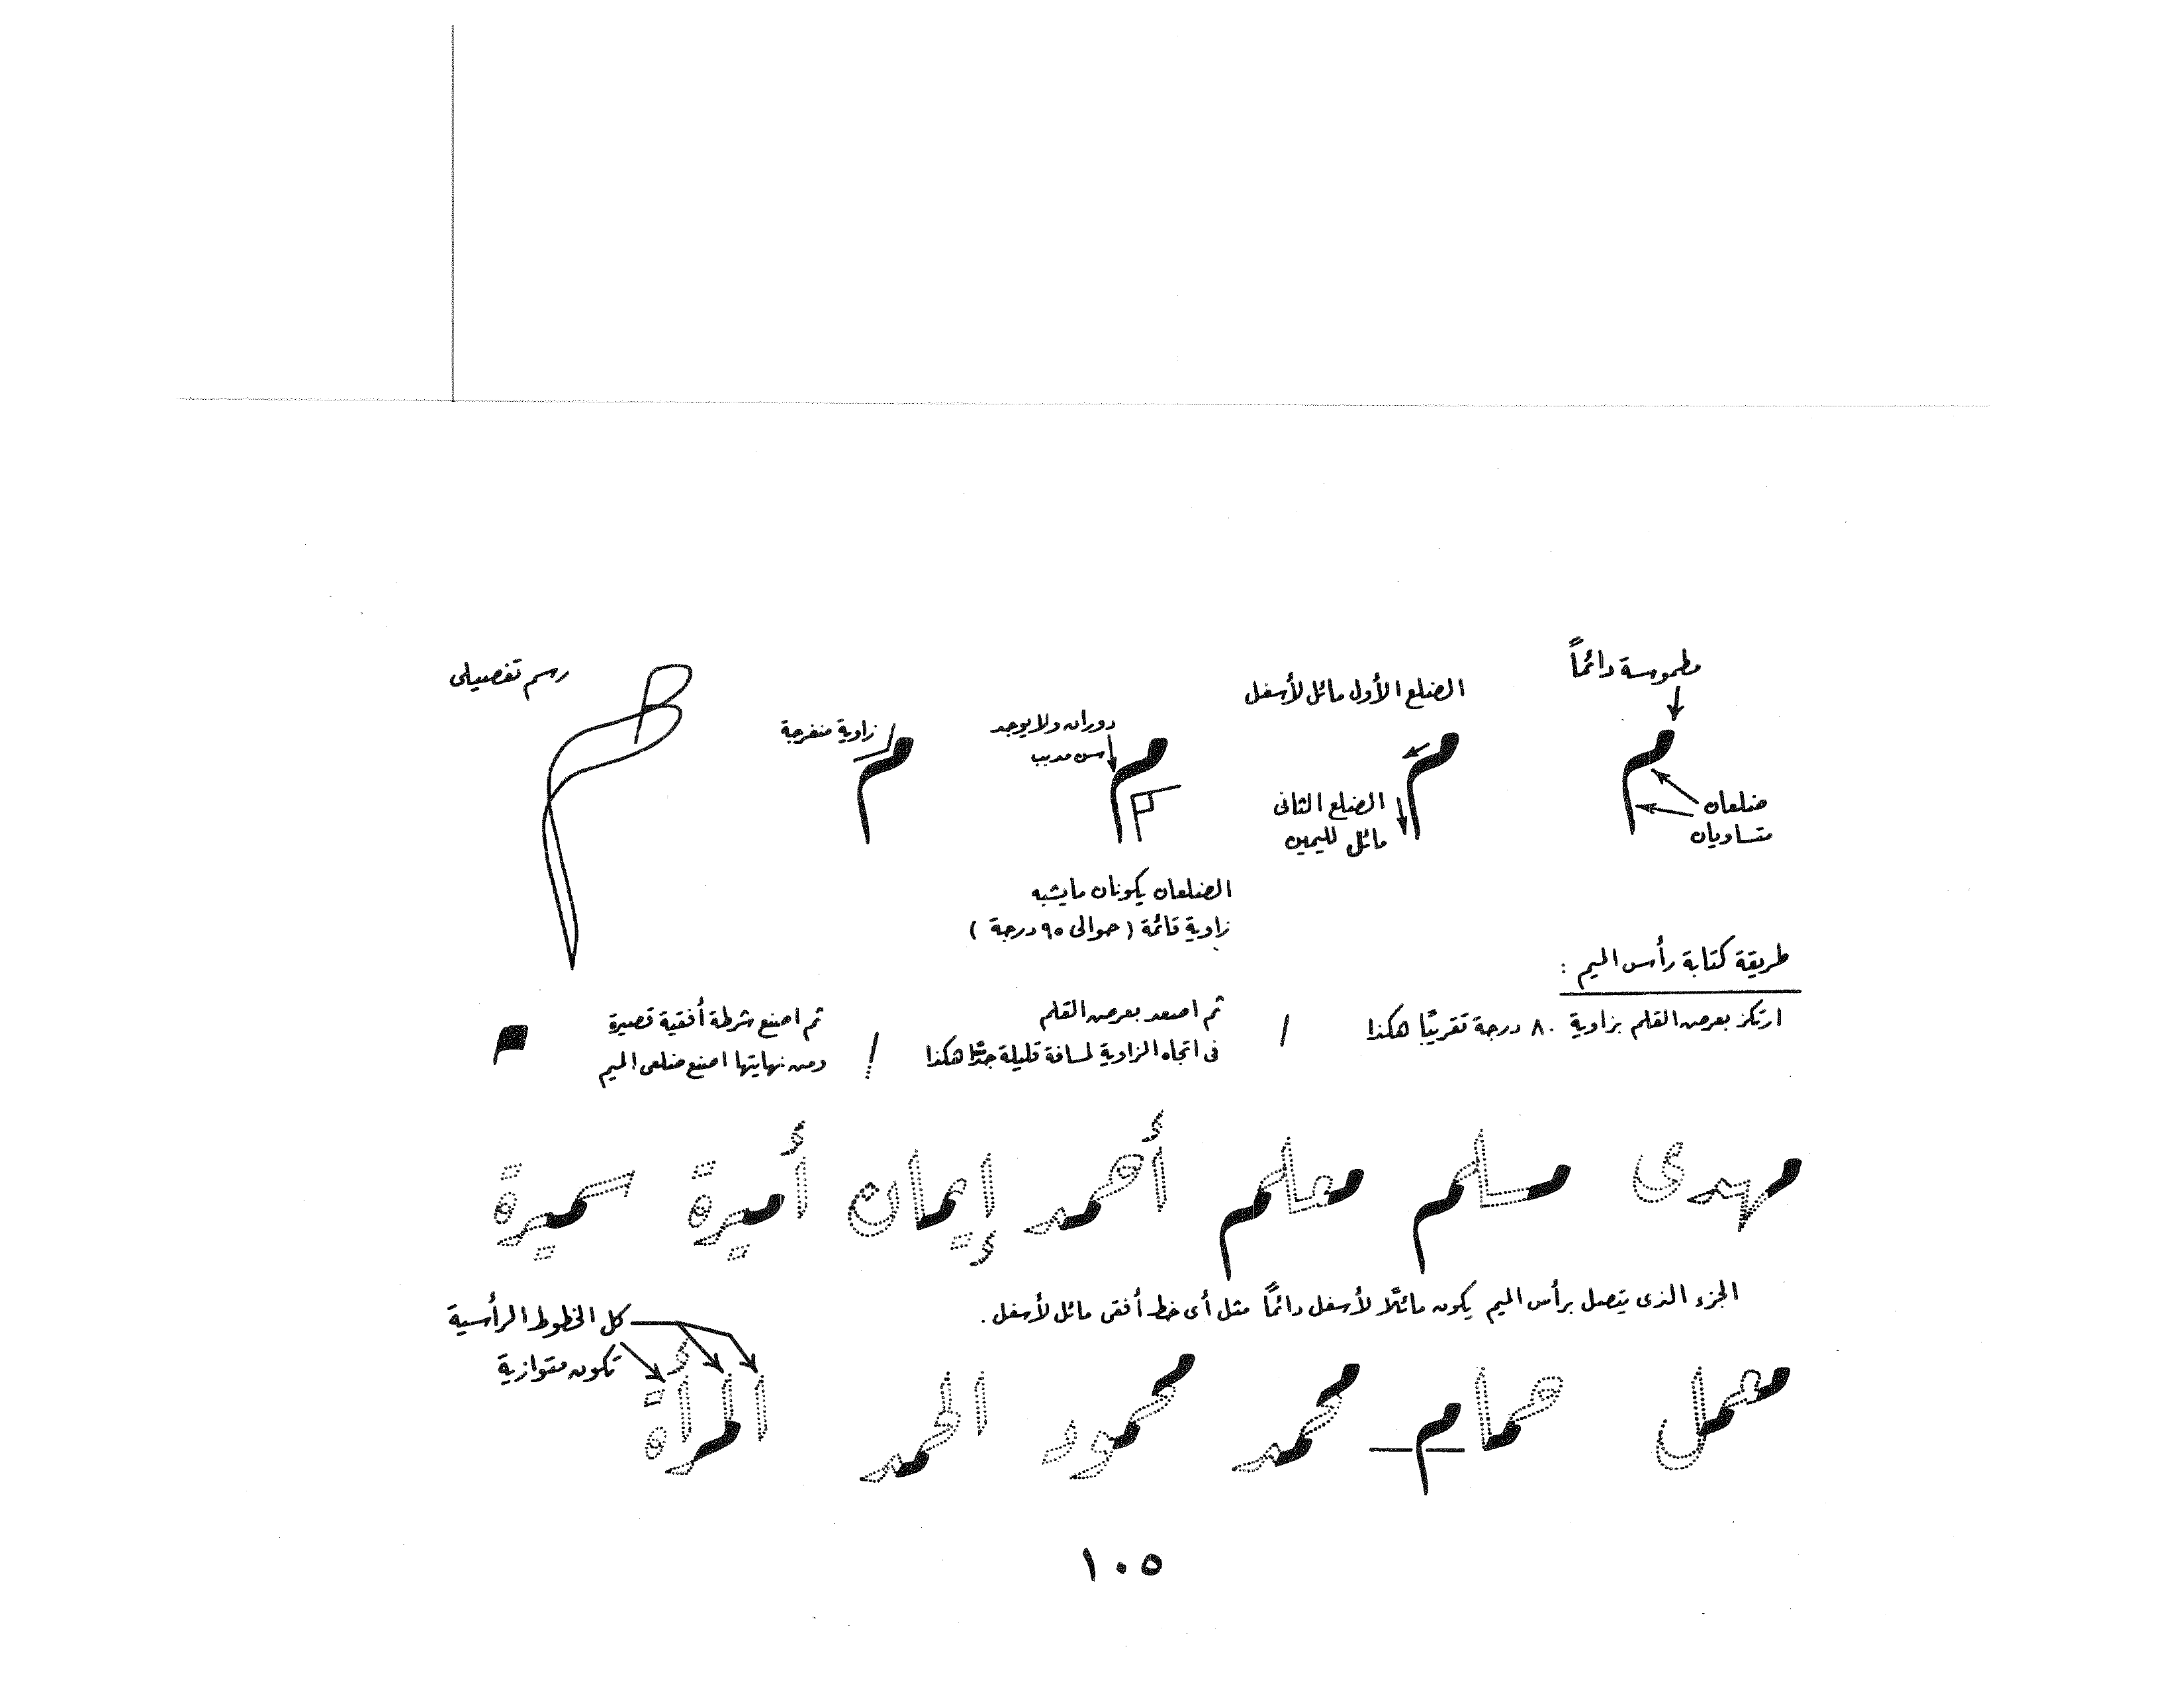 مطموسة دائماً
م
ضلعان
متساويان
الضلع الأول مائل لأسفل
م
الضلع الثانى
مائل لليمين
دوران ولا يوجد
سن مدبب
م
الضلعان يكونان ما يشبه
زاوية قائمة ( حوالى ٩٠ درجة )
زاوية منفرجة
م
رسم تفصيلى
م
طريقة كتابة رأس الميم :
ارتكز بعرض القلم بزاوية ٨٠ درجة تقريبًا هكذا
ثم اصعد بعرض القلم
فى اتجاه الزاوية لمسافة قليلة جدًّا هكذا
ثم اصنع شرطة أفقية قصيرة
ومن نهايتها اصنع ضلعى الميم
مهدى مسلم معلم أحمد إيمان أميرة سميرة
الجزء الذى يتصل برأس الميم يكون مائلًا لأسفل دائماً مثل أى خط أفقى مائل لأسفل .
كل الخطوط الرأسية
تكون متوازية
مهمل همام محمد محمود الحمد امرأة
١٠٥